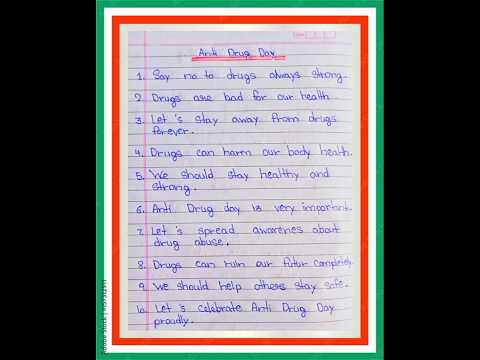 Anti Drug Day
1. Say no to drugs always strong.
2. Drugs are bad for our health.
3. Let's stay away from drugs
forever.
4. Drugs can harm our body health.
5. We should stay healthy and
strong.
6. Anti Drug day is very important.
7. Let's spread awarenes about
drug abuse.
8. Drugs can ruin our futur completely.
9. We should help others stay safe.
10. Let's celebrate Anti Drug Day
proudly.
Adobe Stock |